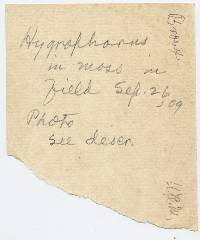 Hygrophorus
in moss in
Field Sep. 26
09
Photo
see descr.